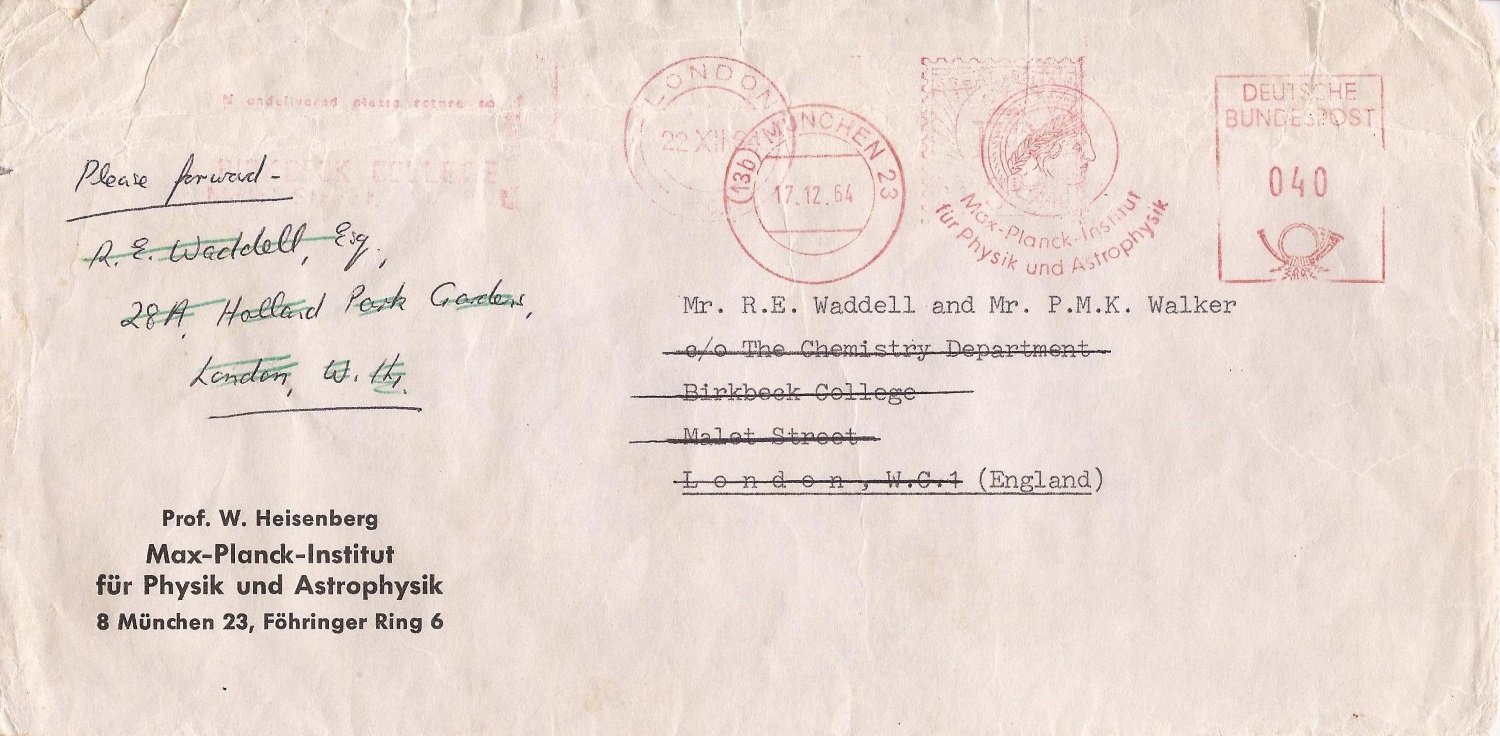 If undelivered please return to
BIRKBECK COLLEGE
Street,
LONDON
22 XII
(13b) MÜNCHEN 23
17.12.64
Max-Planck-Institut
für Physik und Astrophysik
DEUTSCHE
BUNDESPOST
040
Please forward -
R. E. Waddell, Esq.,
28A, Holland Park Gardens,
London, W. 14.
Mr. R.E. Waddell and Mr. P.M.K. Walker
c/o The Chemistry Department
Birkbeck College
Malet Street
L o n d o n , W.C.1 (England)
Prof. W. Heisenberg
Max-Planck-Institut
für Physik und Astrophysik
8 München 23, Föhringer Ring 6